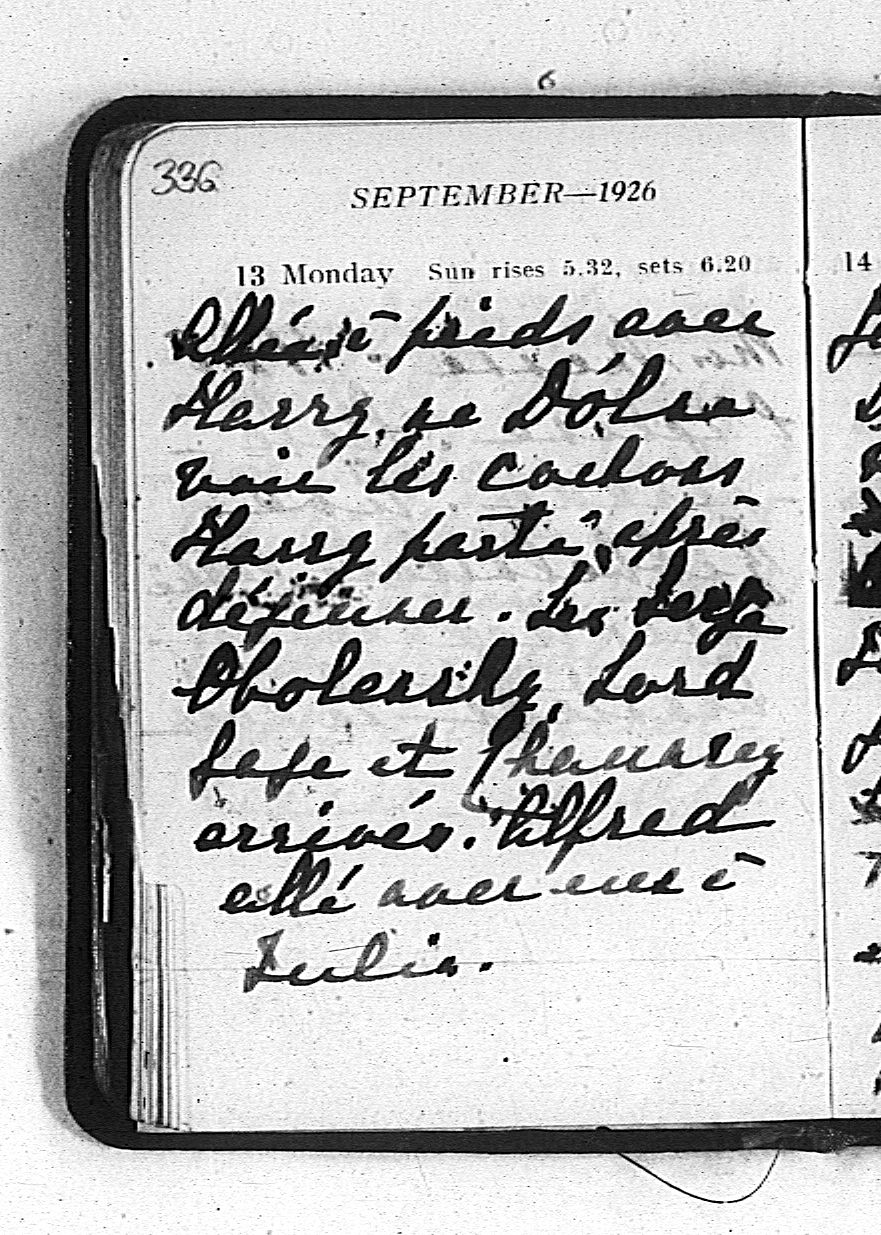 6
336
SEPTEMBER—1926
13 Monday Sun rises 5.32, sets 6.20
14
à pieds avec
Harry, au Dólna
voir les cochons
Harry parti après
déjeuner. Les Serge
Obolensky, Lord
Gage et Channey
arrivés. Alfred
allé avec eux à
Julia.